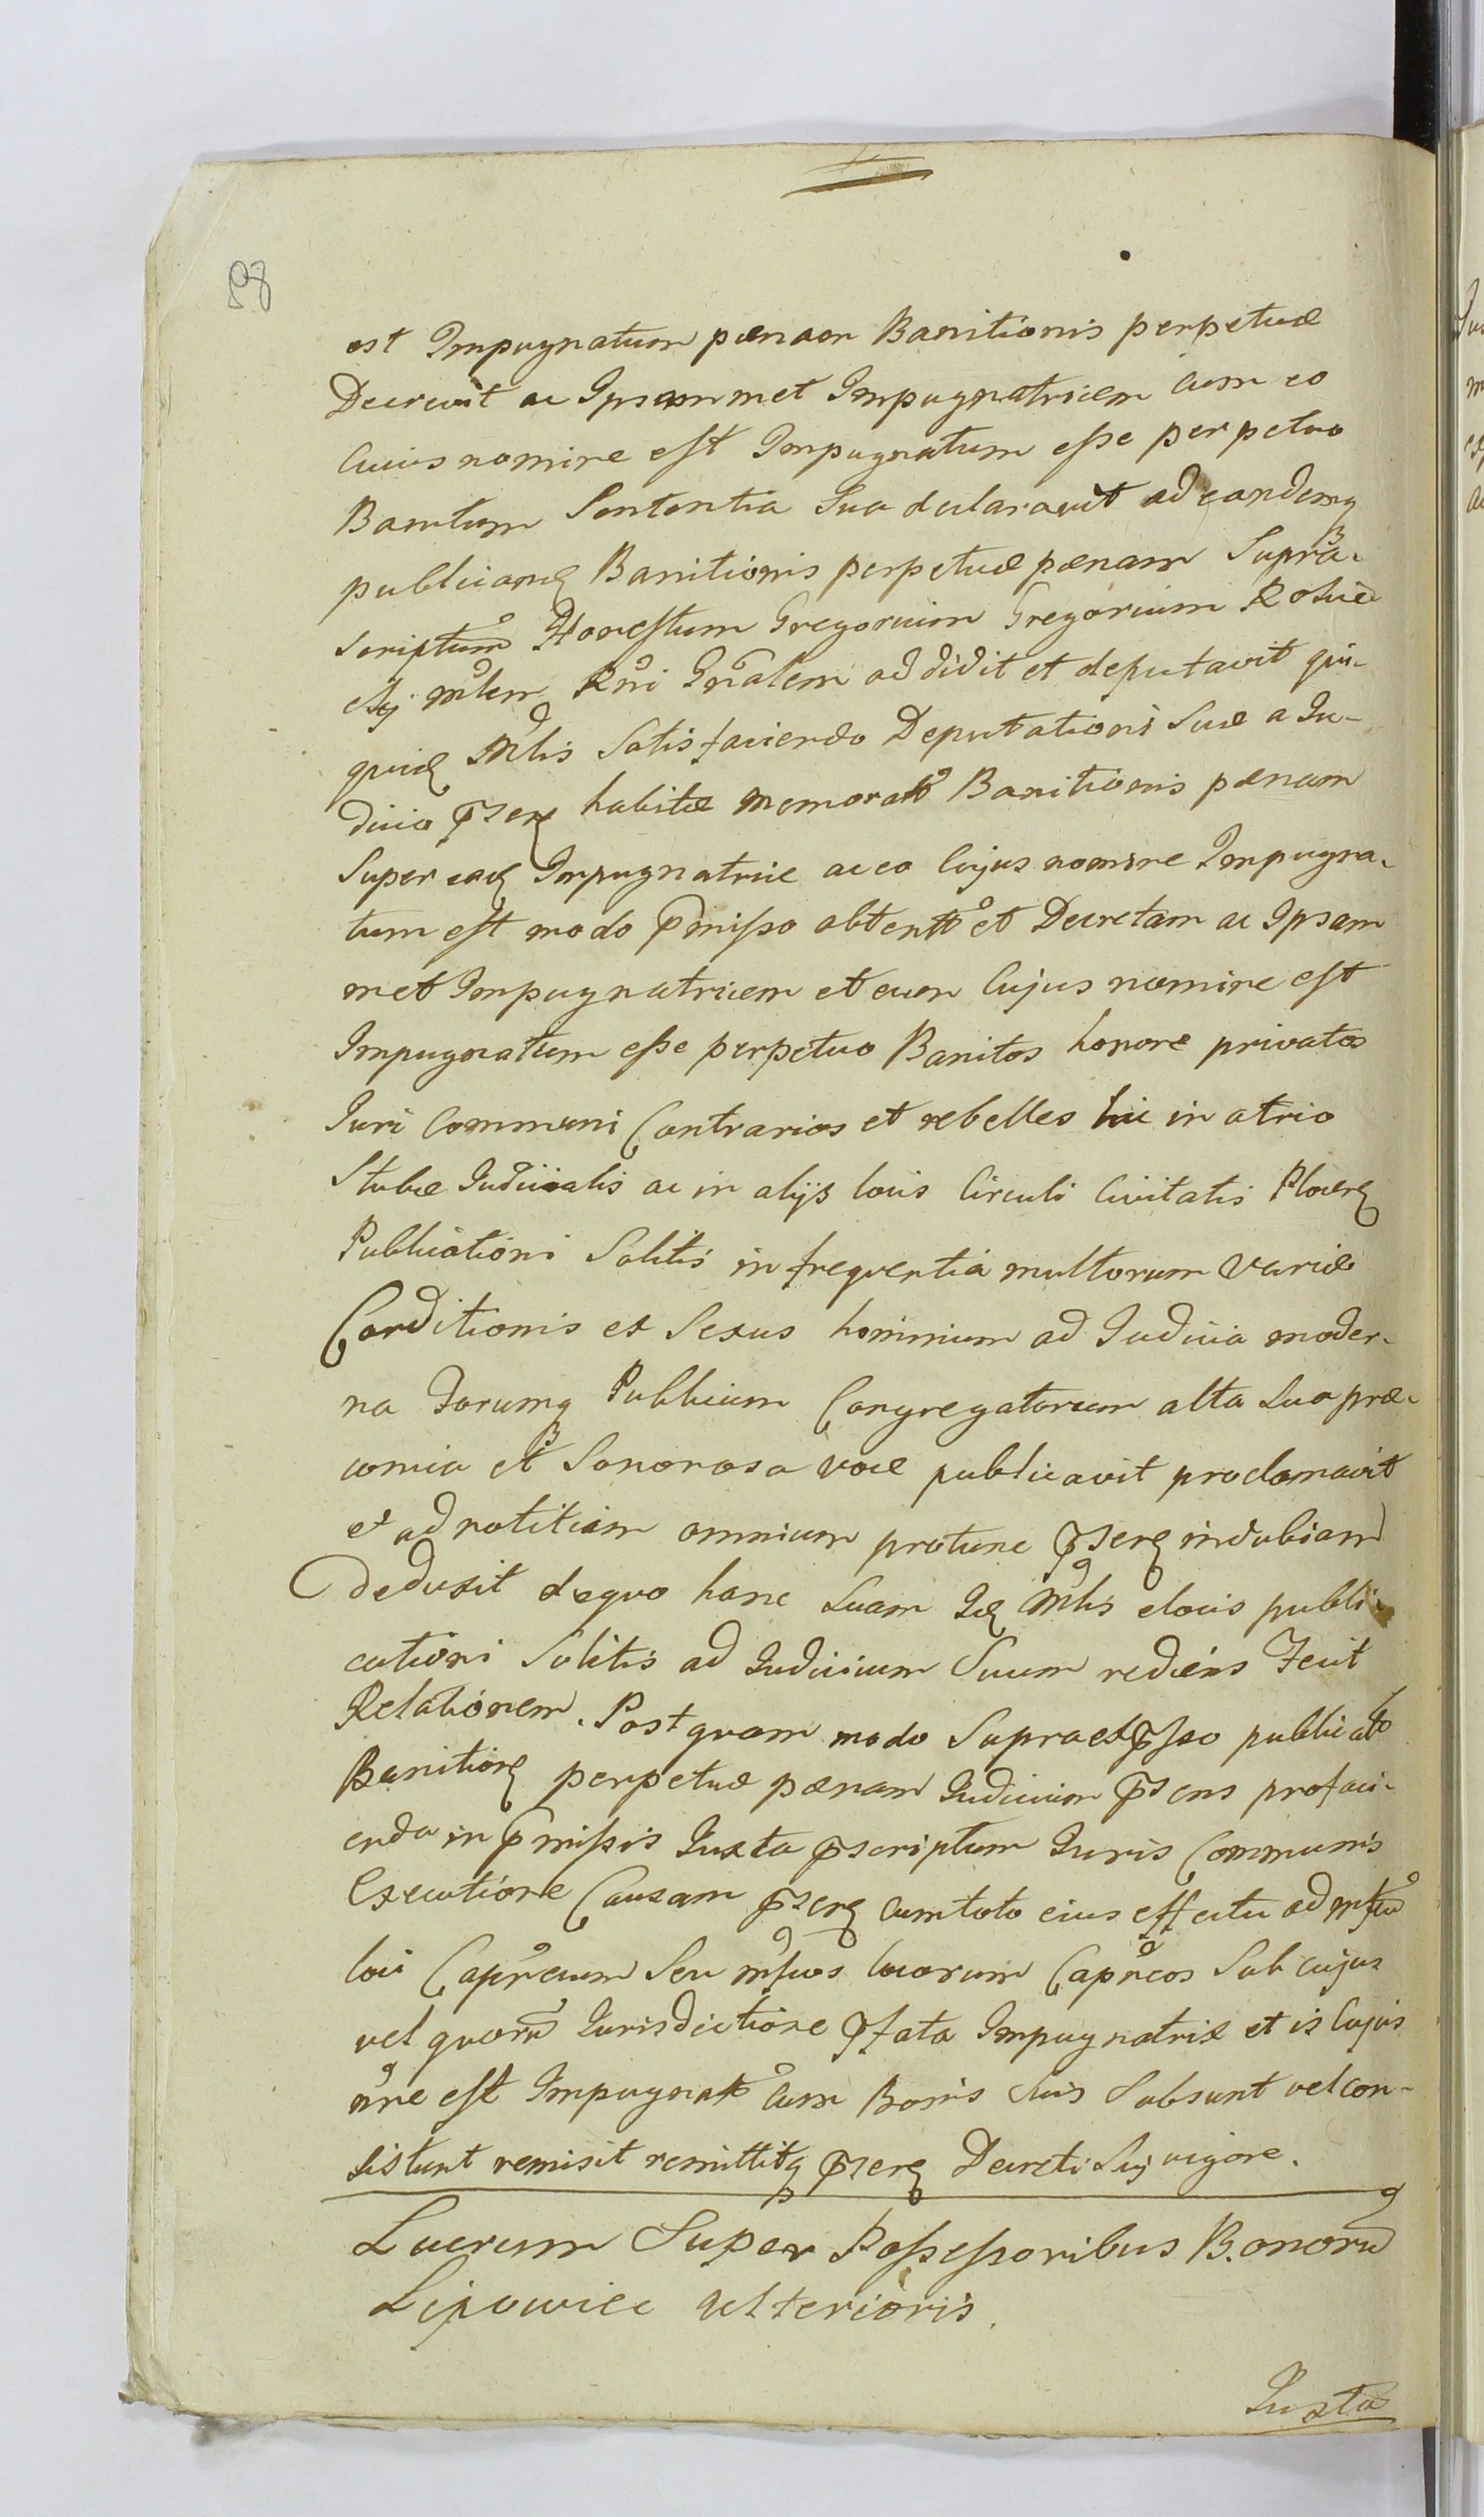 98
est Impugnatum pænam Banitionis perpetuæ
Decrevit ac Ipsammet Impugnatricem cum eo
Cuius nomine est Impugnatum esse perpetuo
Banitum Sententia Sua declaravit ad eandemq
publicand Banitionis perpetuæ pænam Supra-
scriptum Honestum Gregorium Gregorium
Mlem Rni Gnalem addidit et deputavit qui-
quid Mlis Satisfaciendo Deputationi Suæ a Ju-
dicio pnsen habitæ memorat Banitionis pænam
Super ead Impugnatrice ac eo Cujus nomine Impugna-
tum est modo pmisso obtent et Decretam ac Ipsam
met Impugnatricem et eum Cujus nomine est
Impugnatum esse perpetuo Banitos honore privatos
Juri Communi Contrarios et rebelles hic in atrio
Stubæ Judicialis ac in alijs locis Circuli Civitatis Plocen
Publicationi Solitis in frequentia multorum variæ
Conditionis et Sexus hominum ad Judicia moder-
na Forumq Publicum Congregatorum alta Sua præ-
conia et Sonorosa voce publicavit proclamavit
et ad notitiam omnium protunc pnsen indubiam
deduxit de quo hanc Suam Id Mlis e locis publi-
cationi Solitis ad Judicium Suum rediens Fecit
Relationem. Post quam modo Supraexpsso publicat
Banition perpetuæ pænam Judicium pnsens pro faci-
enda in pmissis Juxta pscriptum Juris Communis
Executione Causam pnsen cum toto eius effectu ad
loci Capneum Seu locorum Capneos Sub cujus
vel quoru Jurisdictione pfata Impugnatrix et is Cujus
nne est Impugnat Cum Bonis Suis Subsunt vel con-
sistunt remisit remittitq pnsen Decreti Sui vigore.
Lucrum Super Possessoribus Bonoru
Lipowiec ulterioris.
Juxta